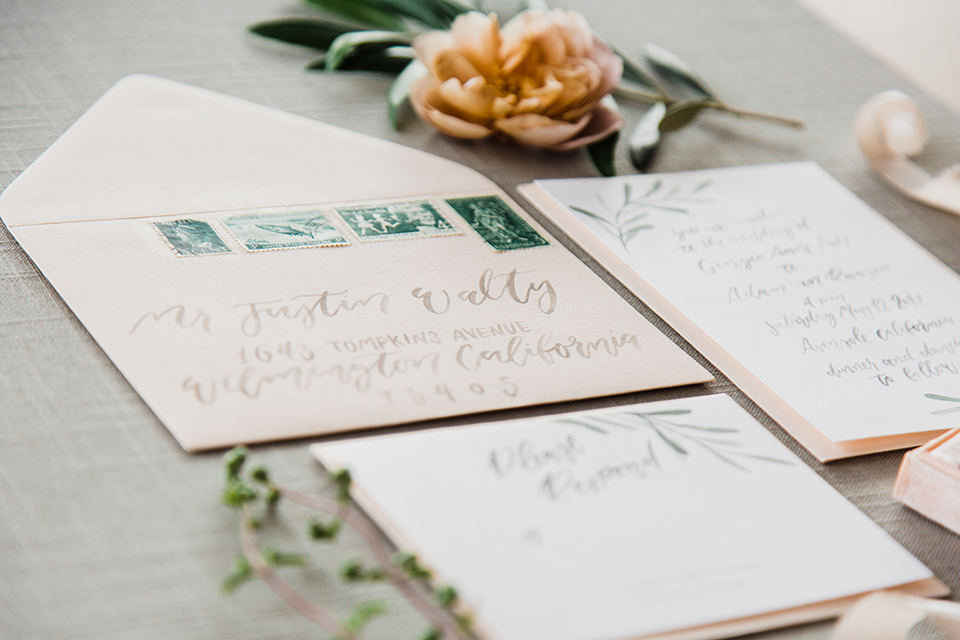 Mr Justin Walty
1643 TOMPKINS AVENUE
Wilmington California
93405
you are invited
to the wedding of
Georgia
to
Adam Von
4 pm
Saturday May 12 2017
California
dinner and
to follow
Please
Respond